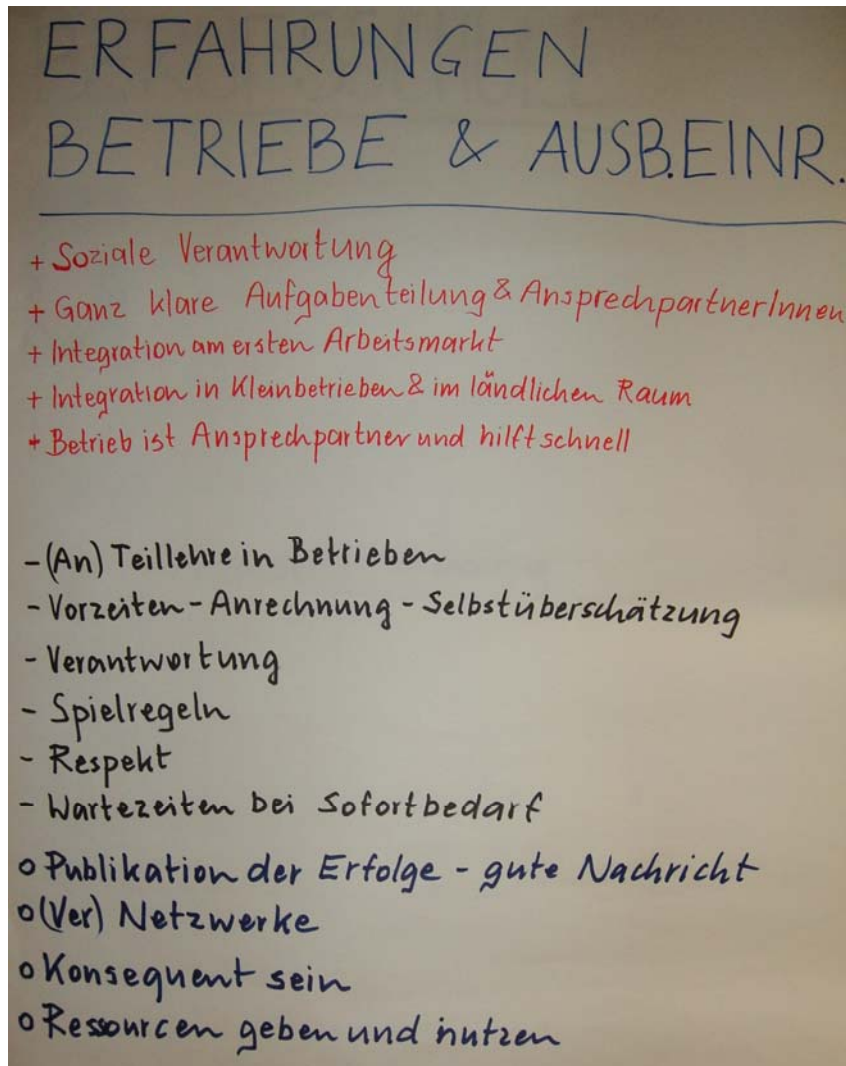 ERFAHRUNGEN
BETRIEBE & AUSB.EINR.
+ Soziale Verantwortung
+ Ganz klare Aufgabenteilung & AnsprechpartnerInnen
+ Integration am ersten Arbeitsmarkt
+ Integration in Kleinbetrieben & im ländlichen Raum
+ Betrieb ist Ansprechpartner und hilft schnell
- (An) Teillehre in Betrieben
- Vorzeiten - Anrechnung - Selbstüberschätzung
- Verantwortung
- Spielregeln
- Respekt
- Wartezeiten bei Sofortbedarf
o Publikation der Erfolge - gute Nachricht
o (Ver) Netzwerke
o Konsequent sein
o Ressourcen geben und nutzen